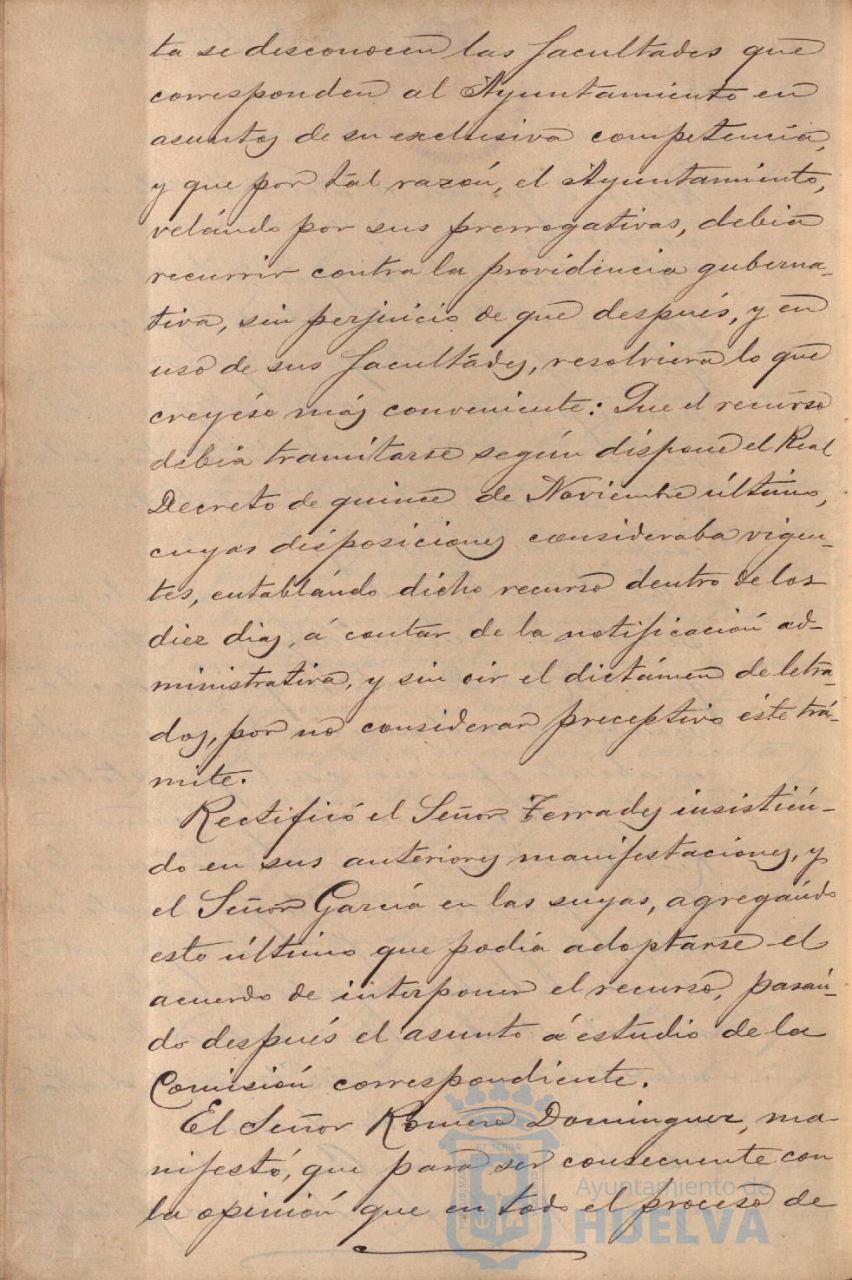 ta se desconocen las facultades que
corresponden al Ayuntamiento en
asuntos de su exclusiva competencia,
y que por tal razón, el Ayuntamiento,
velándo por sus prerrogativas, debia
recurrir contra la providencia guberna-
tiva, sin perjuicio de que después, y en
uso de sus facultádes, resolviera lo que
creyése más conveniente: Que el recurso
debia tramitarse según dispone el Real
Decreto de quince de Noviembre último,
cuyas disposiciones consideraba vigen-
tes, entablándo dicho recurso dentro de los
diez dias, á contar de la notificación ad-
ministrativa, y sin oir el dictámen de letra-
dos, por no considerar preceptivo éste trá-
mite.
Rectificó el Señor Terrades insistién-
do en sus anteriores manifestaciones, y
el Señor García en las suyas, agregándo
este último que podia adoptarse el
acuerdo de interponer el recurso, pasán-
do después el asunto á estudio de la
Comisión correspondiente.
El Señor Romero Dominguez, ma-
nifestó, que para ser consecuente con
la opinión que en todo el proceso de
Ayuntamiento de
HUELVA